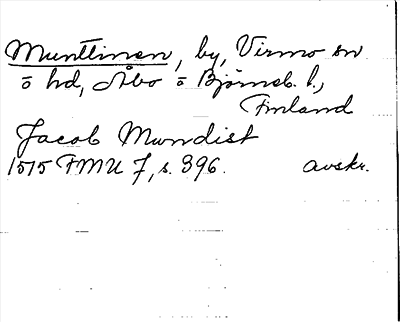 Munttinen, by, Virmo sn
o hd, Åbo o Björneb. l.,
Finland
Jacob Mundist
1515 FMU 7, s. 396. avskr.